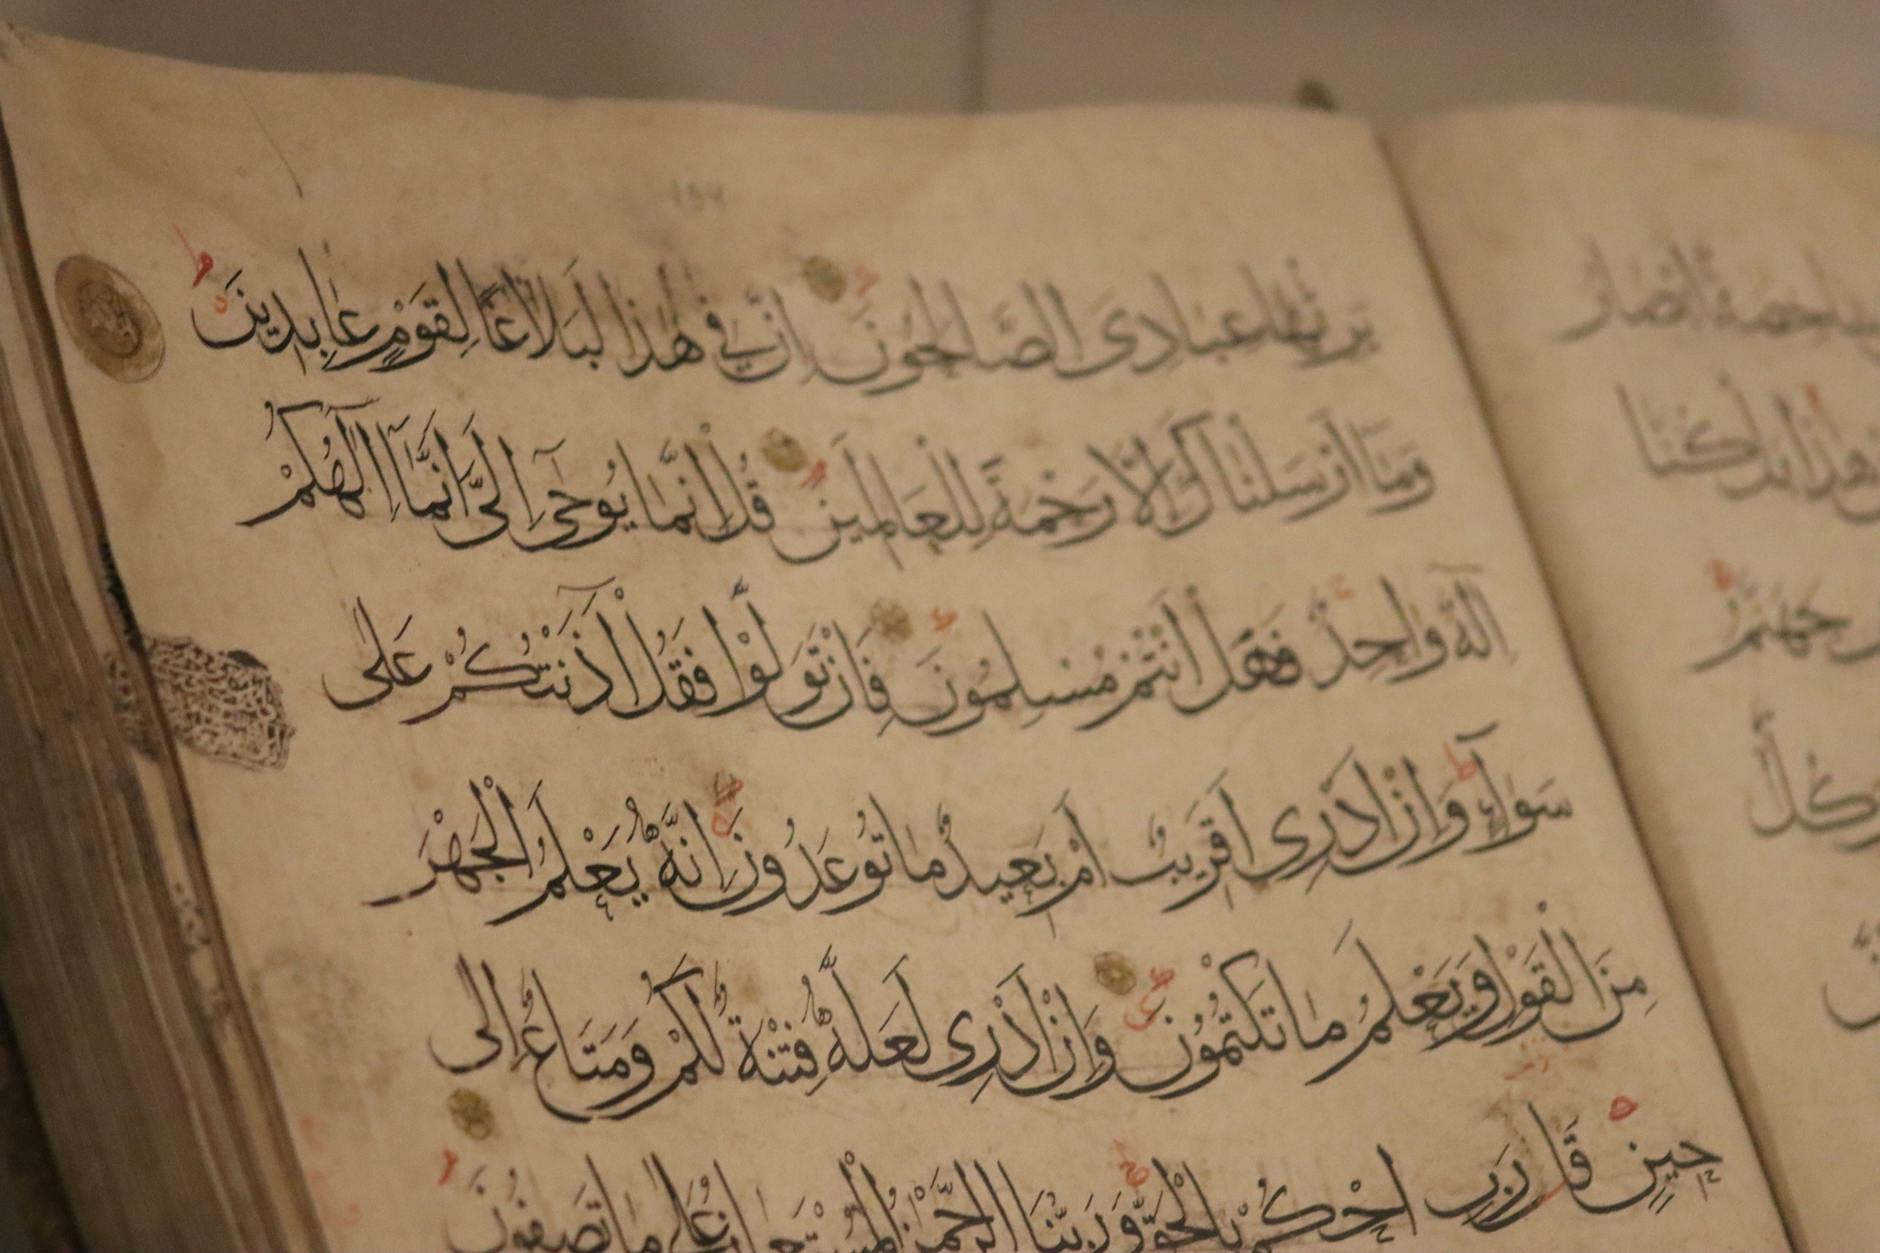 يَرِثُهَا عِبَادِىَ الصَّالِحُونَ اِنَّ فِي هٰذَا لَبَلَاغًا لِقَوْمٍ عَابِدِينَ
وَمَا اَرْسَلْنَاكَ اِلَّا رَحْمَةً لِلْعَالَمِينَ قُلْ اِنَّمَا يُوحٰىٓ اِلَىَّ اَنَّمَآ اِلٰهُكُمْ
اِلٰهٌ وَاحِدٌ فَهَلْ اَنْتُمْ مُسْلِمُونَ فَاِنْ تَوَلَّوْا فَقُلْ اٰذَنْتُكُمْ عَلٰى
سَوَآءٍ وَاِنْ اَدْرِى اَقَرِيبٌ اَمْ بَعِيدٌ مَا تُوعَدُونَ اِنَّهُ يَعْلَمُ الْجَهْرَ
مِنَ الْقَوْلِ وَيَعْلَمُ مَا تَكْتُمُونَ وَاِنْ اَدْرِى لَعَلَّهُ فِتْنَةٌ لَكُمْ وَمَتَاعٌ اِلٰى
حِينٍ قَالَ رَبِّ احْكُمْ بِالْحَقِّ وَرَبُّنَا الرَّحْمٰنُ الْمُسْتَعَانُ عَلٰى مَا تَصِفُونَ
جَهَنَّمَ